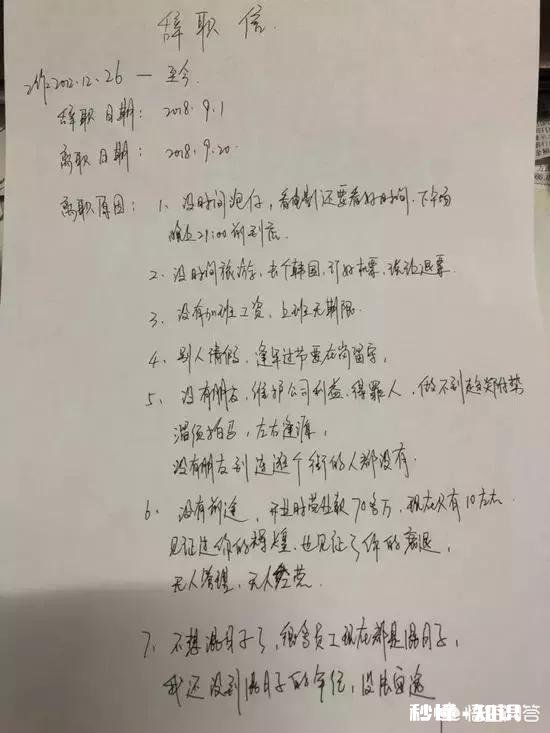 辞职信
工作2012.12.26 — 至今
辞职日期：2018.9.1
离职日期：2018.9.20
离职原因：1、没时间泡仔，看电影还要看好时间.下午场
晚上21:00前到底.
2、没时间旅游，去个韩国，订好机票，被迫退票
3、没有加班工资，上班无期限
4、别人请假，逢年过节要在岗留守，
5、没有朋友，维护公司利益，得罪人，做不到趋炎附势
溜须拍马，左右逢源，
没有朋友到连逛个街的人都没有.
6、没有前途，开业时营业款70多万，现在只有10左右
见证过你的辉煌，也见证了你的衰退，
无人管理，无人经营.
7、不想混日子了，很多员工现在都是混日子，
我还没到混日子的年纪，没法
秒懂知识